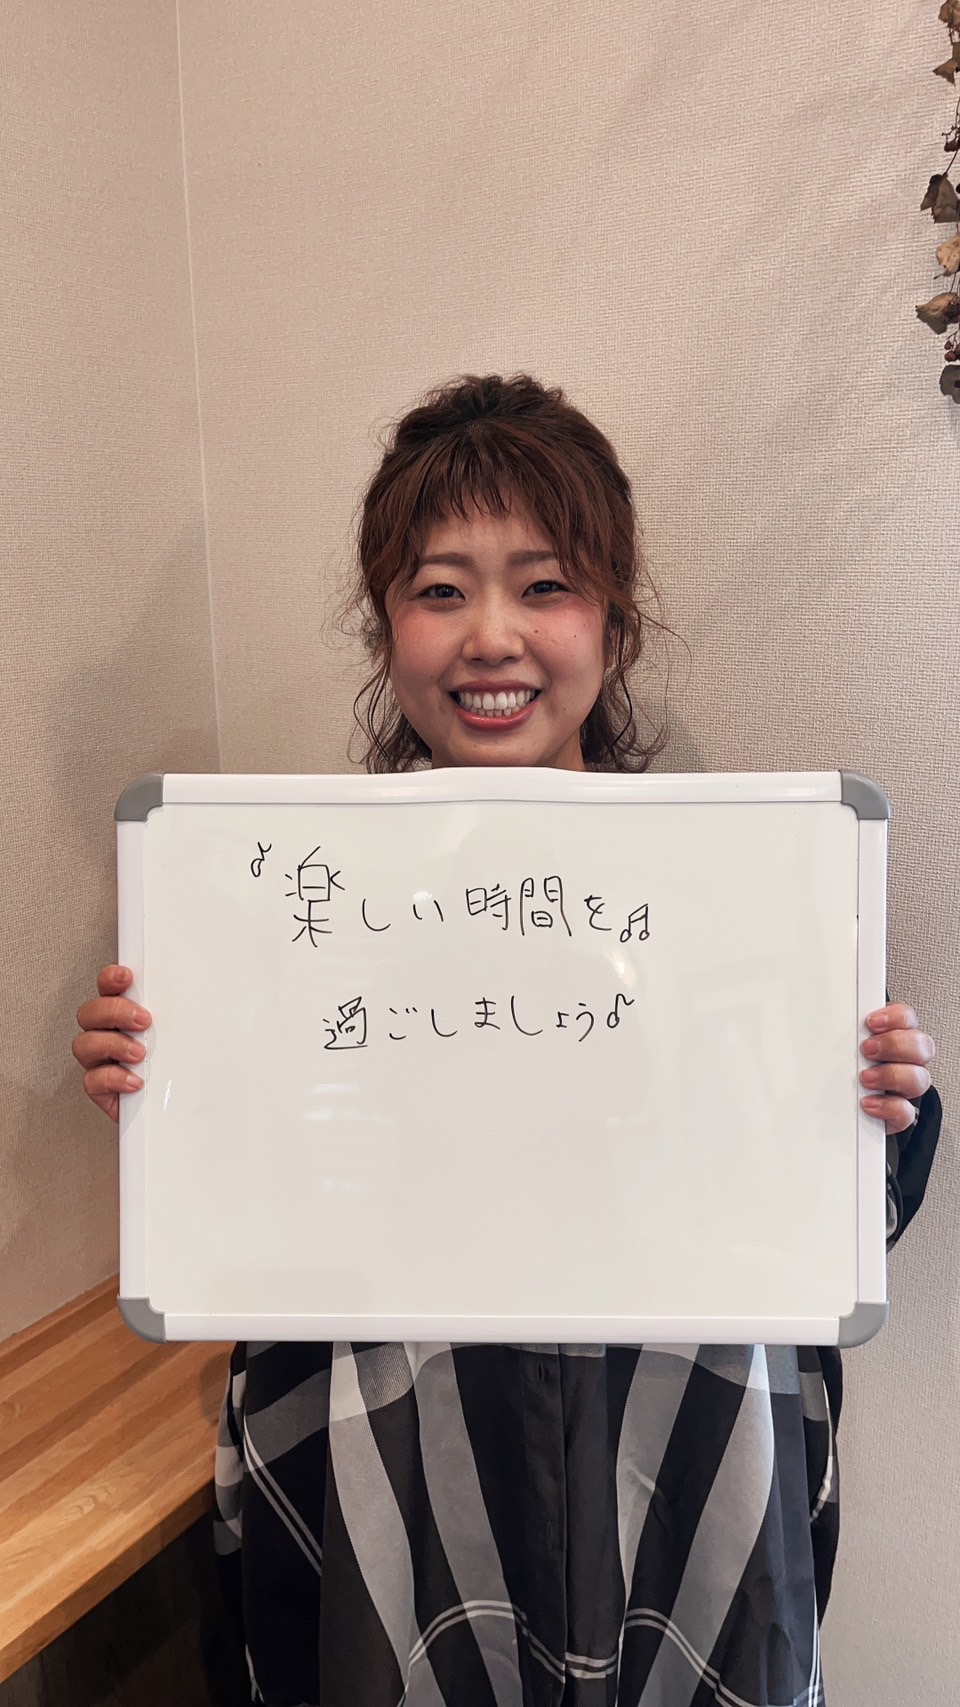 ♪楽しい時間を♫
過ごしましょう♪